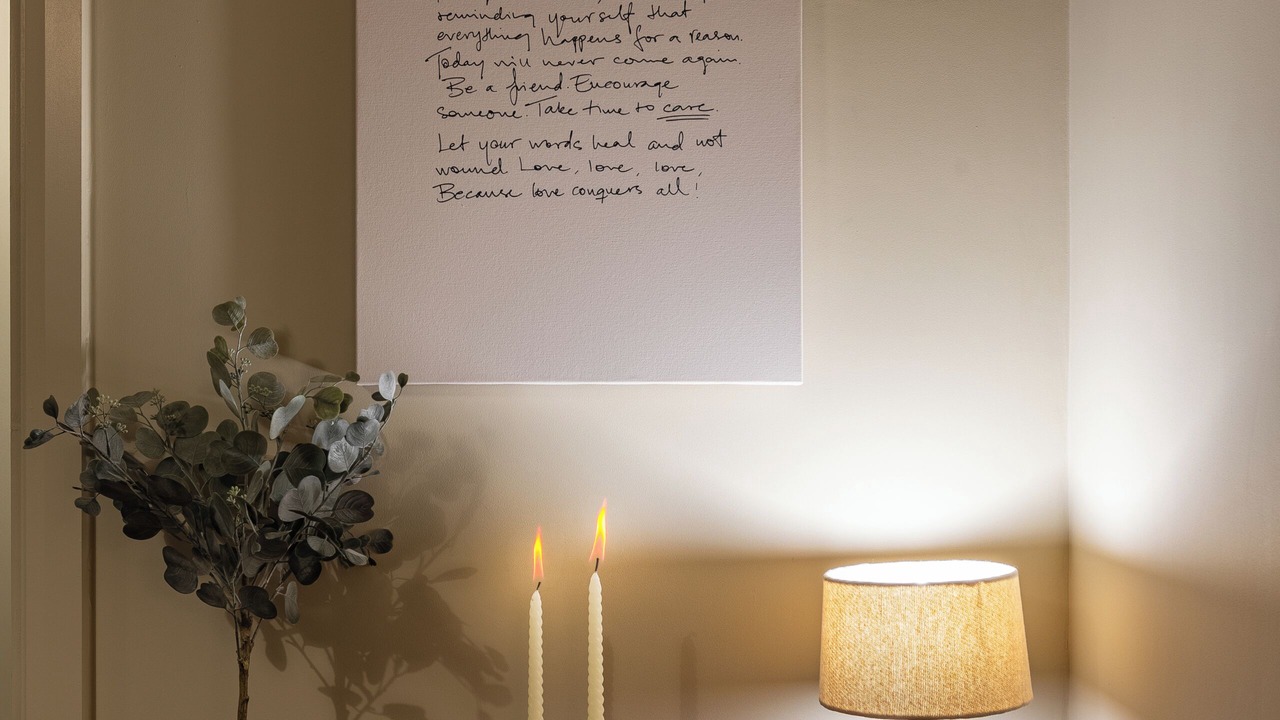 reminding yourself that
everything happens for a reason.
Today will never come again.
Be a friend. Encourage
someone. Take time to care.
Let your words heal and not
wound Love, love, love,
Because love conquers all!